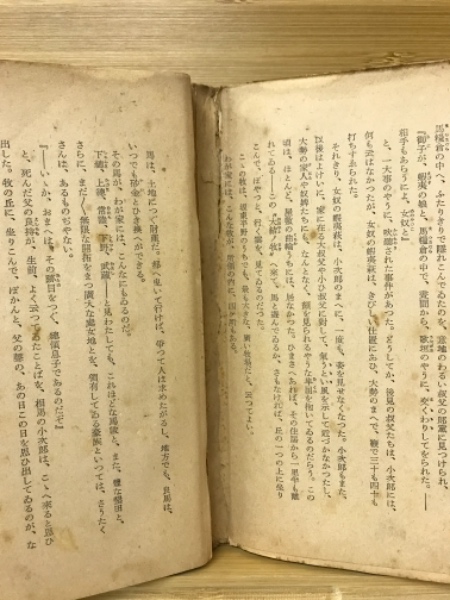 馬糧倉の中へ、ふたりきりで隠れこんでゐたのを、意地のわるい叔父の郎党に見つけられ、
『御子が、蝦夷の娘と、馬糧倉の中で、昼間から、歌垣のやうに、交くわりしてをられた。――
相手もあらうに、女奴と』
と、一大事のやうに、吹聴された事件があつた。どうしてか、後見の叔父たちは、小次郎には、
何も云はなかつたが、女奴の蝦夷萩は、きびしい仕置にあひ、大勢のまへで、鞭で三十も四十も
打ちすゑられた。
それきり、女奴の蝦夷萩は、小次郎のまへに、一度も、姿を見せなくなつた。小次郎もまた、
以後はよけいに、家に在る大叔父や小ひ叔父に対して、気うとい風を示して近づかなかつたし、
大勢の家人や奴婢たちにも、なんとなく、顔を見られるやうな卑屈を抱いてゐるのだらう。この
頃は、ほとんど、屋敷の曲輪うちには、居なかつた。ひまさへあれば、その住居から一里半も離
れてゐる――この『大結ノ牧』へ来て、馬と遊んでゐるか、さもなければ、丘の一つの上に坐り
こんで、ぼやつと、行く雲を、見てゐるのだつた。
こゝの牧は、坂東平野のうちでも、最も大きな、廣い牧場だと、云つてよい。
わが家には、こんな牧が、所領の内に、四ケ所もある。
馬は、土地につぐ財産だ。都へ曳いて行けば、争つて人は求めたがるし、地方でも、良馬は、
いつでも砂金とひき換へができる。
その馬が、わが家には、こんなにもゐるのだ。
下総、上総、常陸、下野、武蔵――と見わたしても、これほどな馬数と、また、豊な墾田と、
さらに、まだ〳〵無限な開拓をまつ廣大な処女地とを、領有してゐる豪族といつては、さうたく
さんは、あるものぢやない。
『――いゝか、おまへは、その家の嗣目をつぐ、総領息子であるのだぞ』
と、死んだ父の良持が、生前、よく云つてゐたことばを、相馬の小次郎は、こゝへ来ると思ひ
出した。牧の丘に、坐りこんで、ぽかんと、父の声の、あの日この日を思ひ出してゐるのが、な